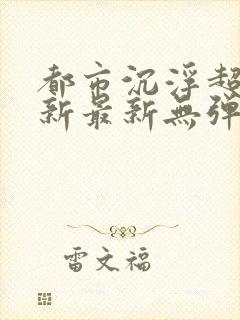 都市沉浮超
新最新無彈
雷文福